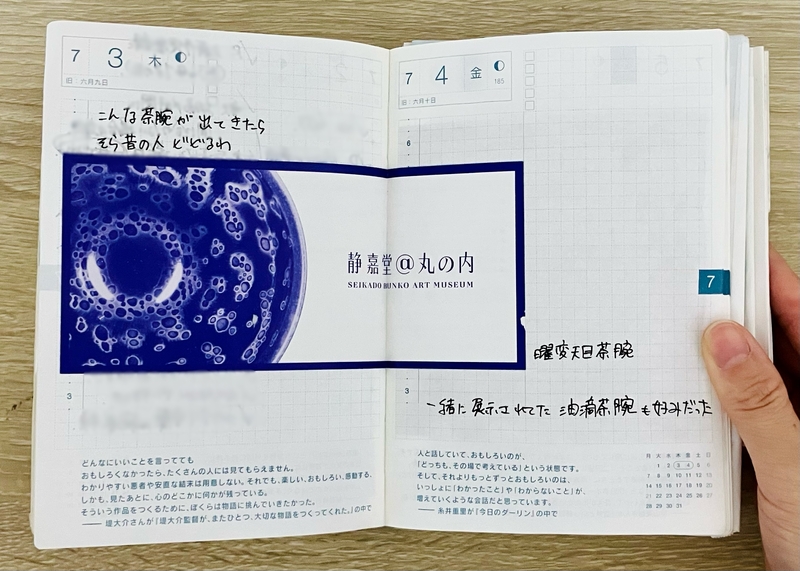 7 3 木
旧：六月九日
こんな茶腕が出てきたら
そら昔の人 どどるわ
3
どんなにいいことを言ってても
おもしろくなかったら、たくさんの人には見てもらえません。
わかりやすい悪者や安直な結末は用意しない。それでも、楽しい、おもしろい、感動する、
しかも、見たあとに、心のどこかに何かが残っている。
そういう作品をつくるために、ぼくらは物語に挑んでいきたかった。
—— 堤大介さんが『堤大介監督が、またひとつ、大切な物語をつくってくれた。』の中で
7 4 金
185
旧：六月十日
6
静嘉堂@丸の内
SEIKADO BUNKO ART MUSEUM
7
曜変天目茶腕
3
一緒に展示されてた 油滴茶腕も好みだった
人と話していて、おもしろいのが、
「どっちも、その場で考えている」という状態です。
そして、それよりもっとずっとおもしろいのは、
いっしょに「わかったこと」や「わからないこと」が、
増えていくような会話だと思っています。
—— 糸井重里が『今日のダーリン』の中で
月 火 水 木 金 土 日
1 2 3 4 5 6
7 8 9 10 11 12 13
14 15 16 17 18 19 20
21 22 23 24 25 26 27
28 29 30 31